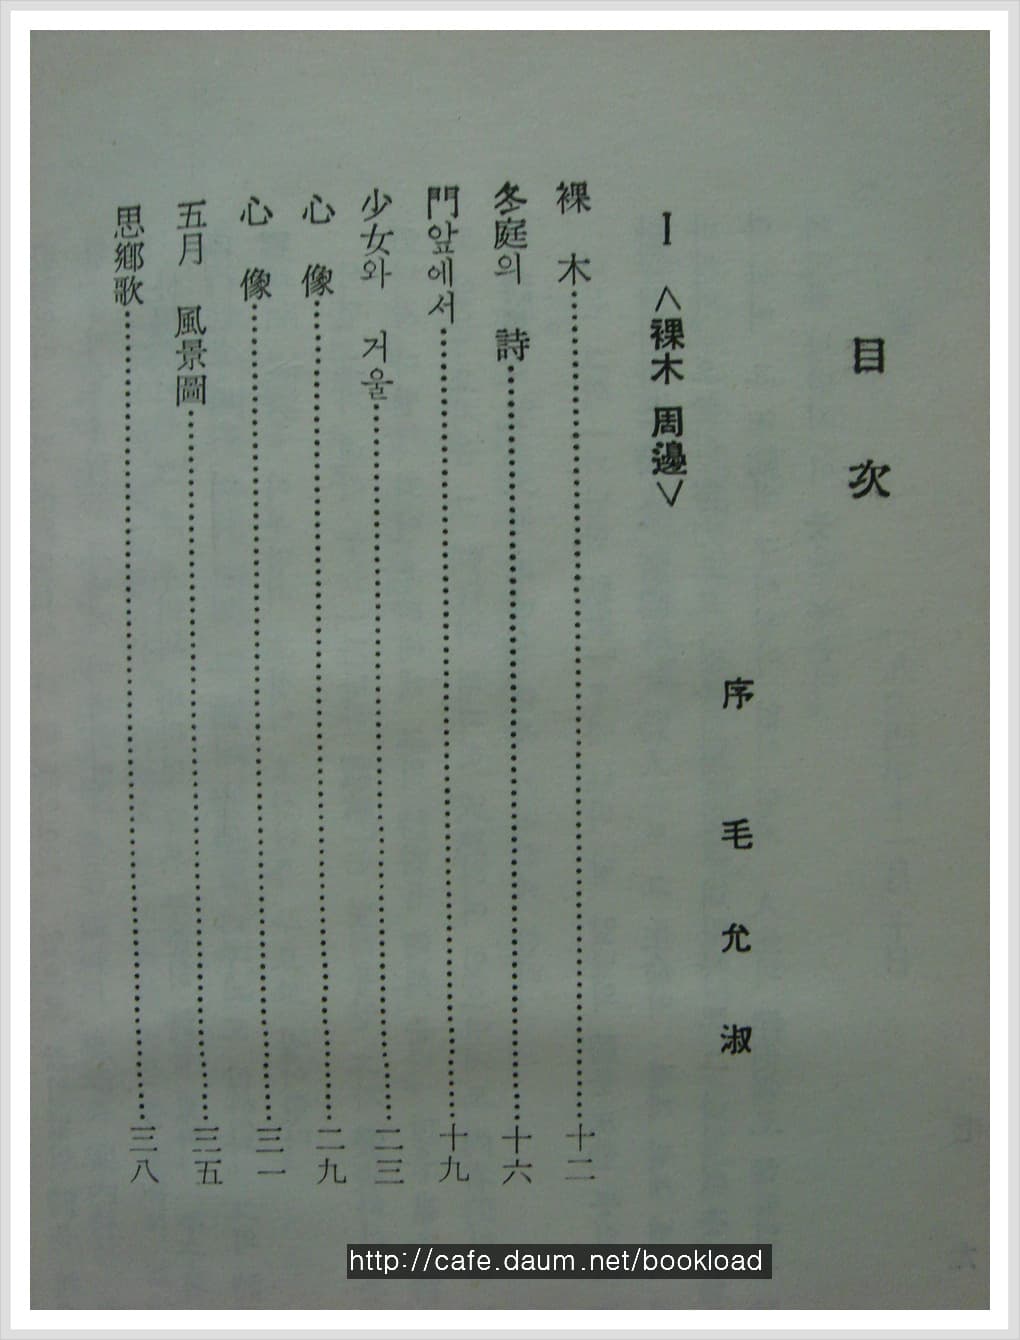 目 次
序 毛 允 淑
I <裸木 周邊>
裸 木……十二
冬庭의 詩……十六
門앞에서……十九
少女와 거울……二三
心 像……二九
心 像……三一
五月 風景圖……三五
思鄉歌……三八
http://cafe.daum.net/bookload